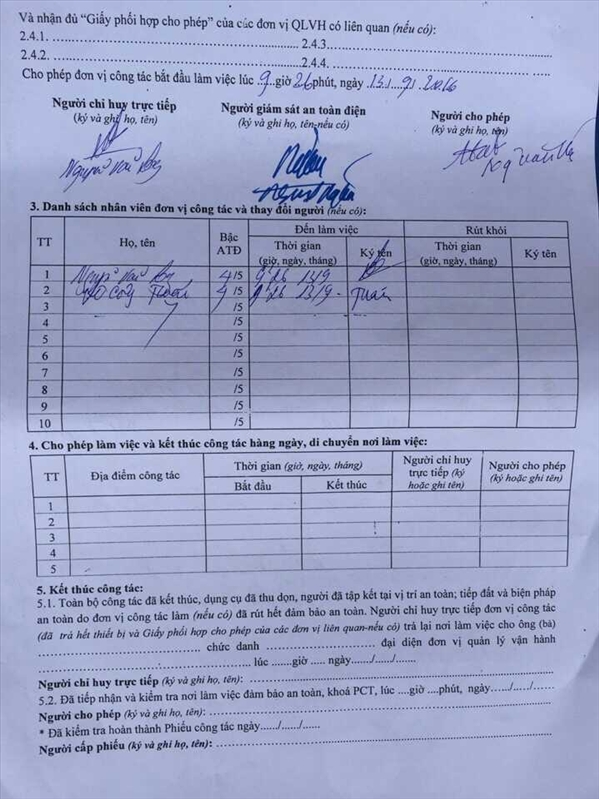 Và nhận đủ “Giấy phối hợp cho phép” của các đơn vị QLVH có liên quan (nếu có):
2.4.1. ........ 2.4.3. ........
2.4.2. ........ 2.4.4. ........
Cho phép đơn vị công tác bắt đầu làm việc lúc 9 giờ 26 phút, ngày 13 / 9 /
Người chỉ huy trực tiếp Người giám sát an toàn điện Người cho phép
(ký và ghi họ, tên) (ký và ghi họ, tên-nếu có) (ký và ghi họ, tên)
3. Danh sách nhân viên đơn vị công tác và thay đổi người (nếu có):
TT Họ, tên Bậc ATĐ Đến làm việc Rút khỏi
Thời gian (giờ, ngày, tháng) Ký tên Thời gian (giờ, ngày, tháng) Ký tên
1 4/5 9h26 13/9
2 4/5 9h26 13/9 Tuấn
3 /5
4 /5
5 /5
6 /5
7 /5
8 /5
9 /5
10 /5
4. Cho phép làm việc và kết thúc công tác hàng ngày, di chuyển nơi làm việc:
TT Địa điểm công tác Thời gian (giờ, ngày, tháng) Người chỉ huy trực tiếp (ký hoặc ghi tên) Người cho phép (ký hoặc ghi tên)
Bắt đầu Kết thúc
1
2
3
4
5
5. Kết thúc công tác:
5.1. Toàn bộ công tác đã kết thúc, dụng cụ đã thu dọn, người đã tập kết tại vị trí an toàn; tiếp đất và biện pháp
an toàn do đơn vị công tác làm (nếu có) đã rút hết đảm bảo an toàn. Người chỉ huy trực tiếp đơn vị công tác
(đã trả hết thiết bị và Giấy phối hợp cho phép của các đơn vị liên quan-nếu có) trả lại nơi làm việc cho ông (bà)
........ chức danh ........ đại diện đơn vị quản lý vận hành
........ lúc ....giờ .... ngày..../..../....
Người chỉ huy trực tiếp (ký và ghi họ, tên): ........
5.2. Đã tiếp nhận và kiểm tra nơi làm việc đảm bảo an toàn, khoá PCT, lúc ....giờ ....phút, ngày..../..../....
Người cho phép (ký và ghi họ, tên): ........
* Đã kiểm tra hoàn thành Phiếu công tác ngày..../..../....
Người cấp phiếu (ký và ghi họ, tên): ........